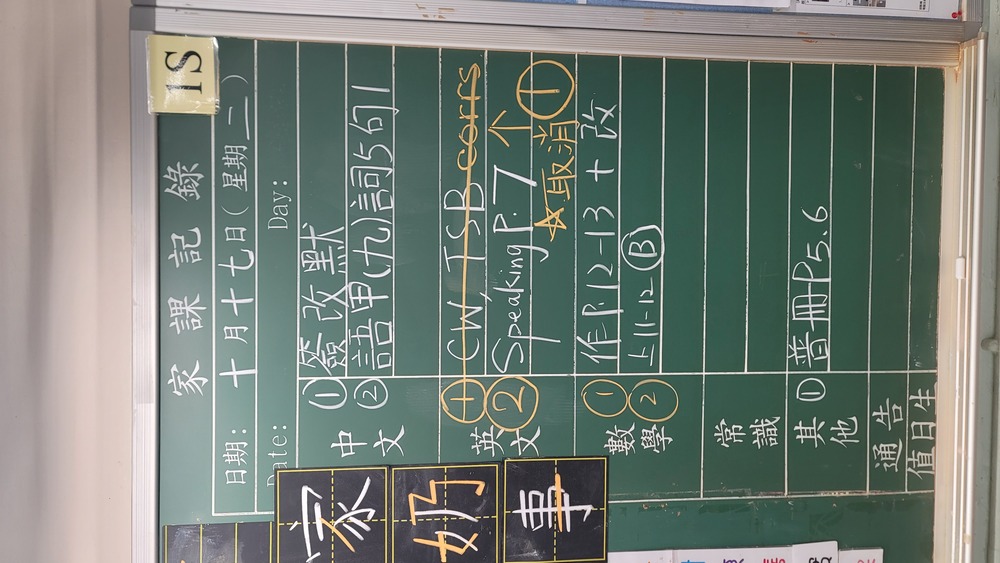 1S
家課記錄
日期: 十月十七日(星期二)
Date: Day:
中文
① 簽改默
② 語甲(九)詞5句1
英文
① CW, TSB corrs
② Speaking P.7 →
☆取消①
數學
① 作P.12-13 + 改
② 上11-12 Ⓑ
常識
其他
① 普冊P5.6
通告
值日生
家
奶
事